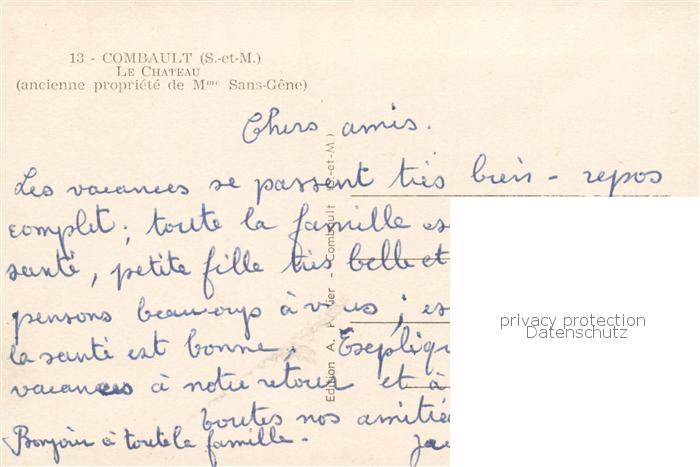 13 - COMBAULT (S.-et-M.)
LE CHATEAU
(ancienne propriété de Mme Sans-Gêne)
Chers amis.
Les vacances se passent très bien - repos
complet; toute la famille es
santé, petite fille très belle et
pensons beaucoup à vous; es
la santé est bonne,
vacances à notre retour et à
toutes nos amitié
Bonjour à toute la famille -
Edition A. - Combault (S.-et-M.)
privacy protection
Datenschutz